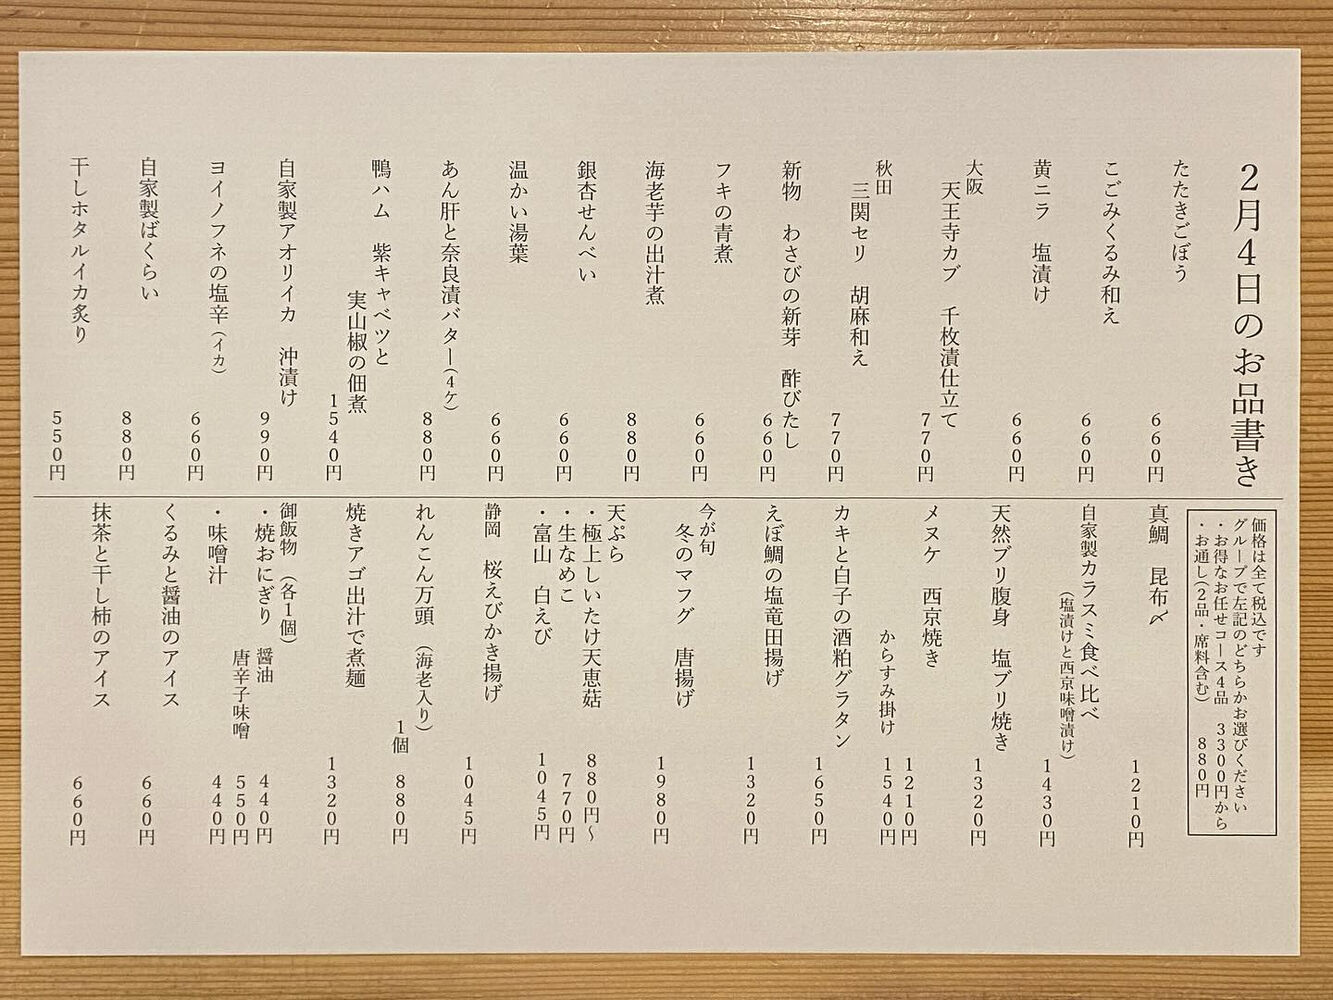 2月4日のお品書き
たたきごぼう
660円
こごみくるみ和え
660円
黄ニラ 塩漬け
660円
大阪
天王寺カブ 千枚漬仕立て
770円
秋田
三関セリ 胡麻和え
770円
新物 わさびの新芽 酢びたし
660円
フキの青煮
660円
海老芋の出汁煮
880円
銀杏せんべい
660円
温かい湯葉
660円
あん肝と奈良漬バター(4ケ)
880円
鴨ハム 紫キャベツと
実山椒の佃煮
1540円
自家製アオリイカ 沖漬け
990円
ヨイノフネの塩辛(イカ)
660円
自家製ばくらい
880円
干しホタルイカ炙り
550円
価格は全て税込です
グループで左記のどちらかお選びください
・お得なお任せコース4品 3300円から
・お通し(2品・席料含む) 880円
真鯛 昆布〆
1210円
自家製カラスミ食べ比べ
(塩漬けと西京味噌漬け)
1430円
天然ブリ腹身 塩ブリ焼き
1320円
メヌケ 西京焼き
1210円
からすみ掛け
1540円
カキと白子の酒粕グラタン
1650円
えぼ鯛の塩竜田揚げ
1320円
今が旬
冬のマフグ 唐揚げ
1980円
天ぷら
・極上しいたけ天恵菇 880円〜
・生なめこ 770円
・富山 白えび 1045円
静岡 桜えびかき揚げ
1045円
れんこん万頭 (海老入り)
1個 880円
焼きアゴ出汁で煮麺
1320円
御飯物 (各1個)
・焼おにぎり 醤油 440円
唐辛子味噌 550円
・味噌汁 440円
くるみと醤油のアイス
660円
抹茶と干し柿のアイス
660円